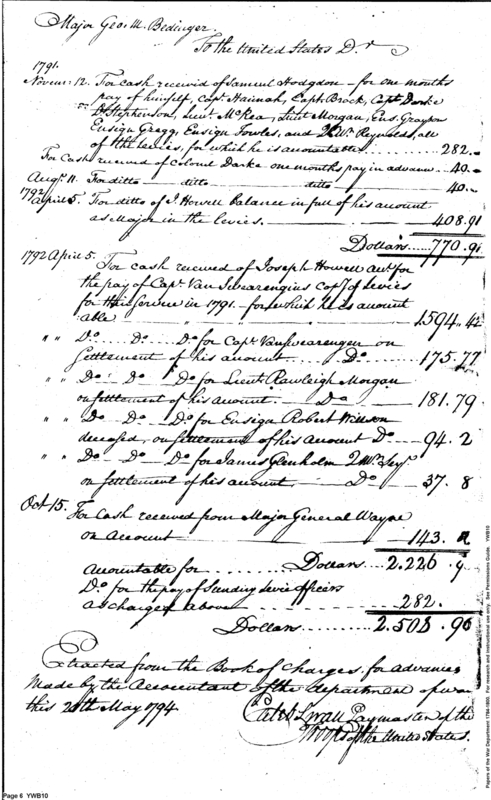 Major Geo. M. Bedinger.
To the United States Dr
1791.
Novem: 12. For cash received of Samuel Hodgdon for one months
pay of himself, capt. Hannah, Capt. Brock, Capt. Darke
Dr Stephenson, Lieut McRea, Lieut Morgan, Ens. Graydon
Ensign Gregg, Ensign Fowles, and 2 Mr. Reynolds, all
of the levies, for which he is accountable 282.
For Cash received of Colonel Darke one months pay in advance 40.
Augt. 11. For ditto ditto ditto 40.
1792
April 5. For ditto of J. Howell balance in full of his account
as Major in the levies. 408.91
Dollars 770.91
1792 April 5.
For cash received of Joseph Howell Actt. for
the pay of Capt. Van Swearengins copy. of levies
for their service in 1791 for which he is account
able 1594.42
" " Do. Do. Do for Capt. Van Swearengen on
settlement of his account Do. 175.77
" " Do Do Do for Lieut. Rawleigh Morgan
on settlement of his account. Do 181.79
" " Do Do Do for Ensign Robert Willson
deceased, on settlement of his account Do 94.2
" " Do Do Do for James Glenholm 2 Mr. Serjt.
on settlement of his account. Do 37.8
Oct 15. For Cash received from Major General Wayne
on account 143.
accountable for Dollars 2.226.9
Do. for the pay of Sundry levie officers
as charged above 282.
Dollars 2.508.90
Extracted from the Book of Charges for advances
made by the Accountant of the department of war
this 20th May 1794
Caleb Swan Paymaster of the
Troops of the United States.
Page 6 YWB10
Papers of the War Department 1784-1800. For research and instructional use only. See Permissions Guide. YWB10